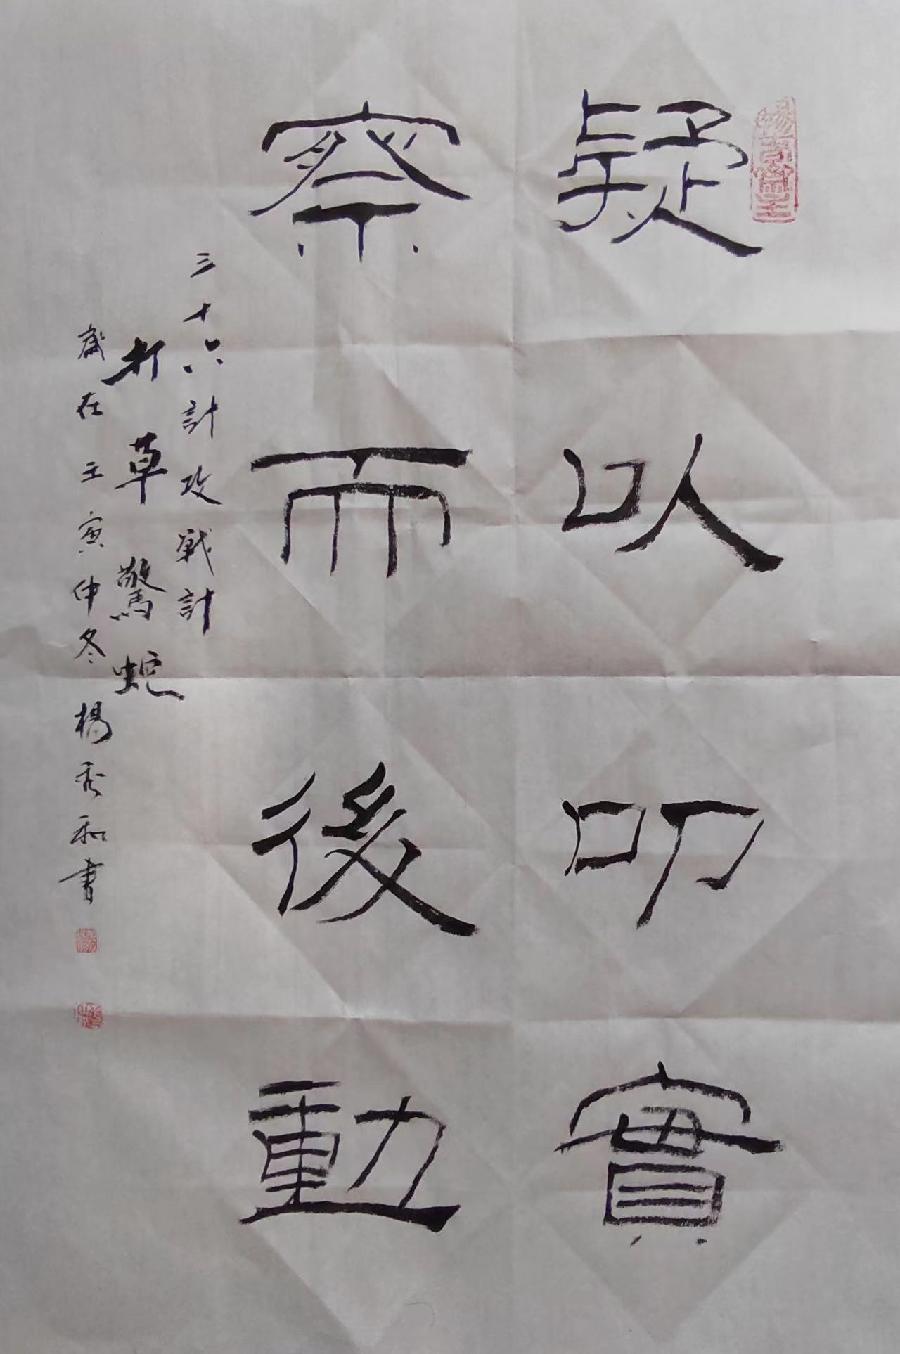 疑以叩實
察而後動
三十六計攻戰計
打草驚蛇
歲在壬寅仲冬楊秀和書